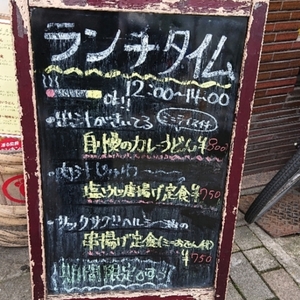 ランチタイム
12:00~14:00
OK!!
・出汁がきいてる
ミニライス付
自慢のカレーうどん¥800
・肉汁じゅわ〜
塩だれ唐揚げ定食¥750
・サックサク!!ヘルシー
串揚げ定食(ミニおでん付)
¥750
期間限定です